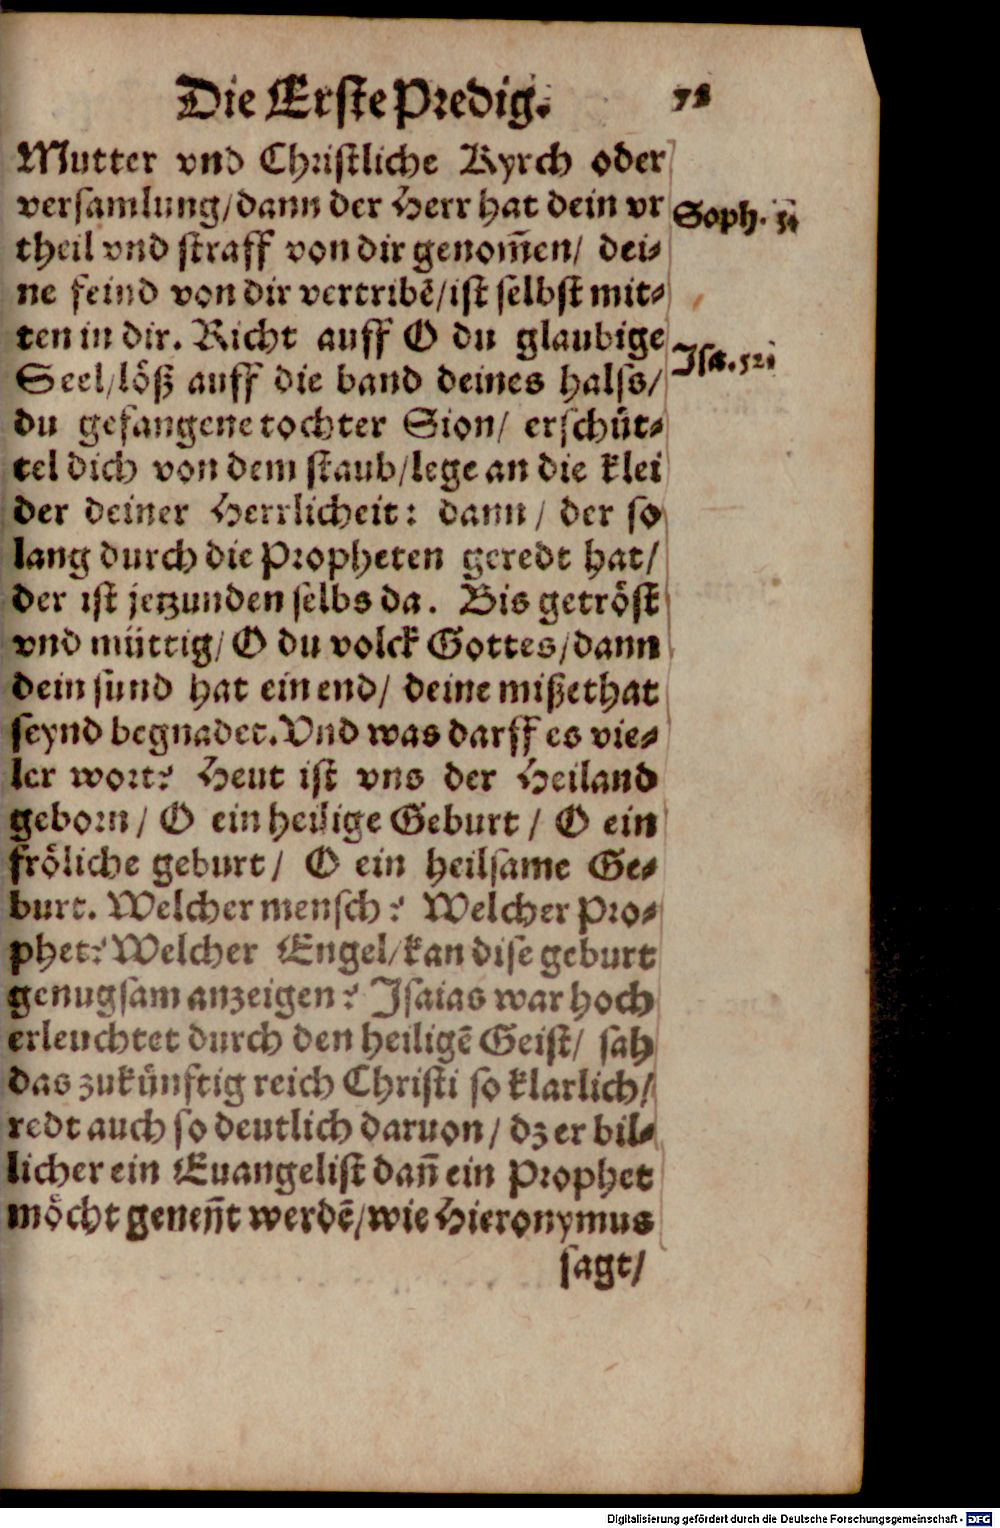 Die Erste Predig. 78
Mutter vnd Christliche Kyrch oder
versamlung/dann der Herr hat dein vr
Soph. 3.
theil vnd straff von dir genom̃en/ dei-
ne feind von dir vertribẽ/ist selbst mit-
ten in dir. Richt auff O du glaubige
Isa. 52.
Seel/löß auff die band deines halss/
du gefangene tochter Sion/ erschüt-
tel dich von dem staub/lege an die klei
der deiner Herrlicheit: dann/ der so
lang durch die Propheten geredt hat/
der ist jetzunden selbs da. Bis getröst
vnd müttig/ O du volck Gottes/dann
dein sund hat ein end/ deine mißethat
seynd begnadet. Vnd was darff es vie-
ler wort? Heut ist vns der Heiland
geborn/ O ein heilige Geburt/ O ein
fröliche geburt/ O ein heilsame Ge-
burt. Welcher mensch? Welcher Pro-
phet? Welcher Engel/kan dise geburt
genugsam anzeigen? Isaias war hoch
erleuchtet durch den heiligẽ Geist/ sah
das zukünftig reich Christi so klarlich/
redt auch so deutlich daruon/ dz er bil-
licher ein Euangelist dañ ein Prophet
möcht geneñt werdẽ/wie Hieronymus
sagt/
Digitalisierung gefördert durch die Deutsche Forschungsgemeinschaft - DFG